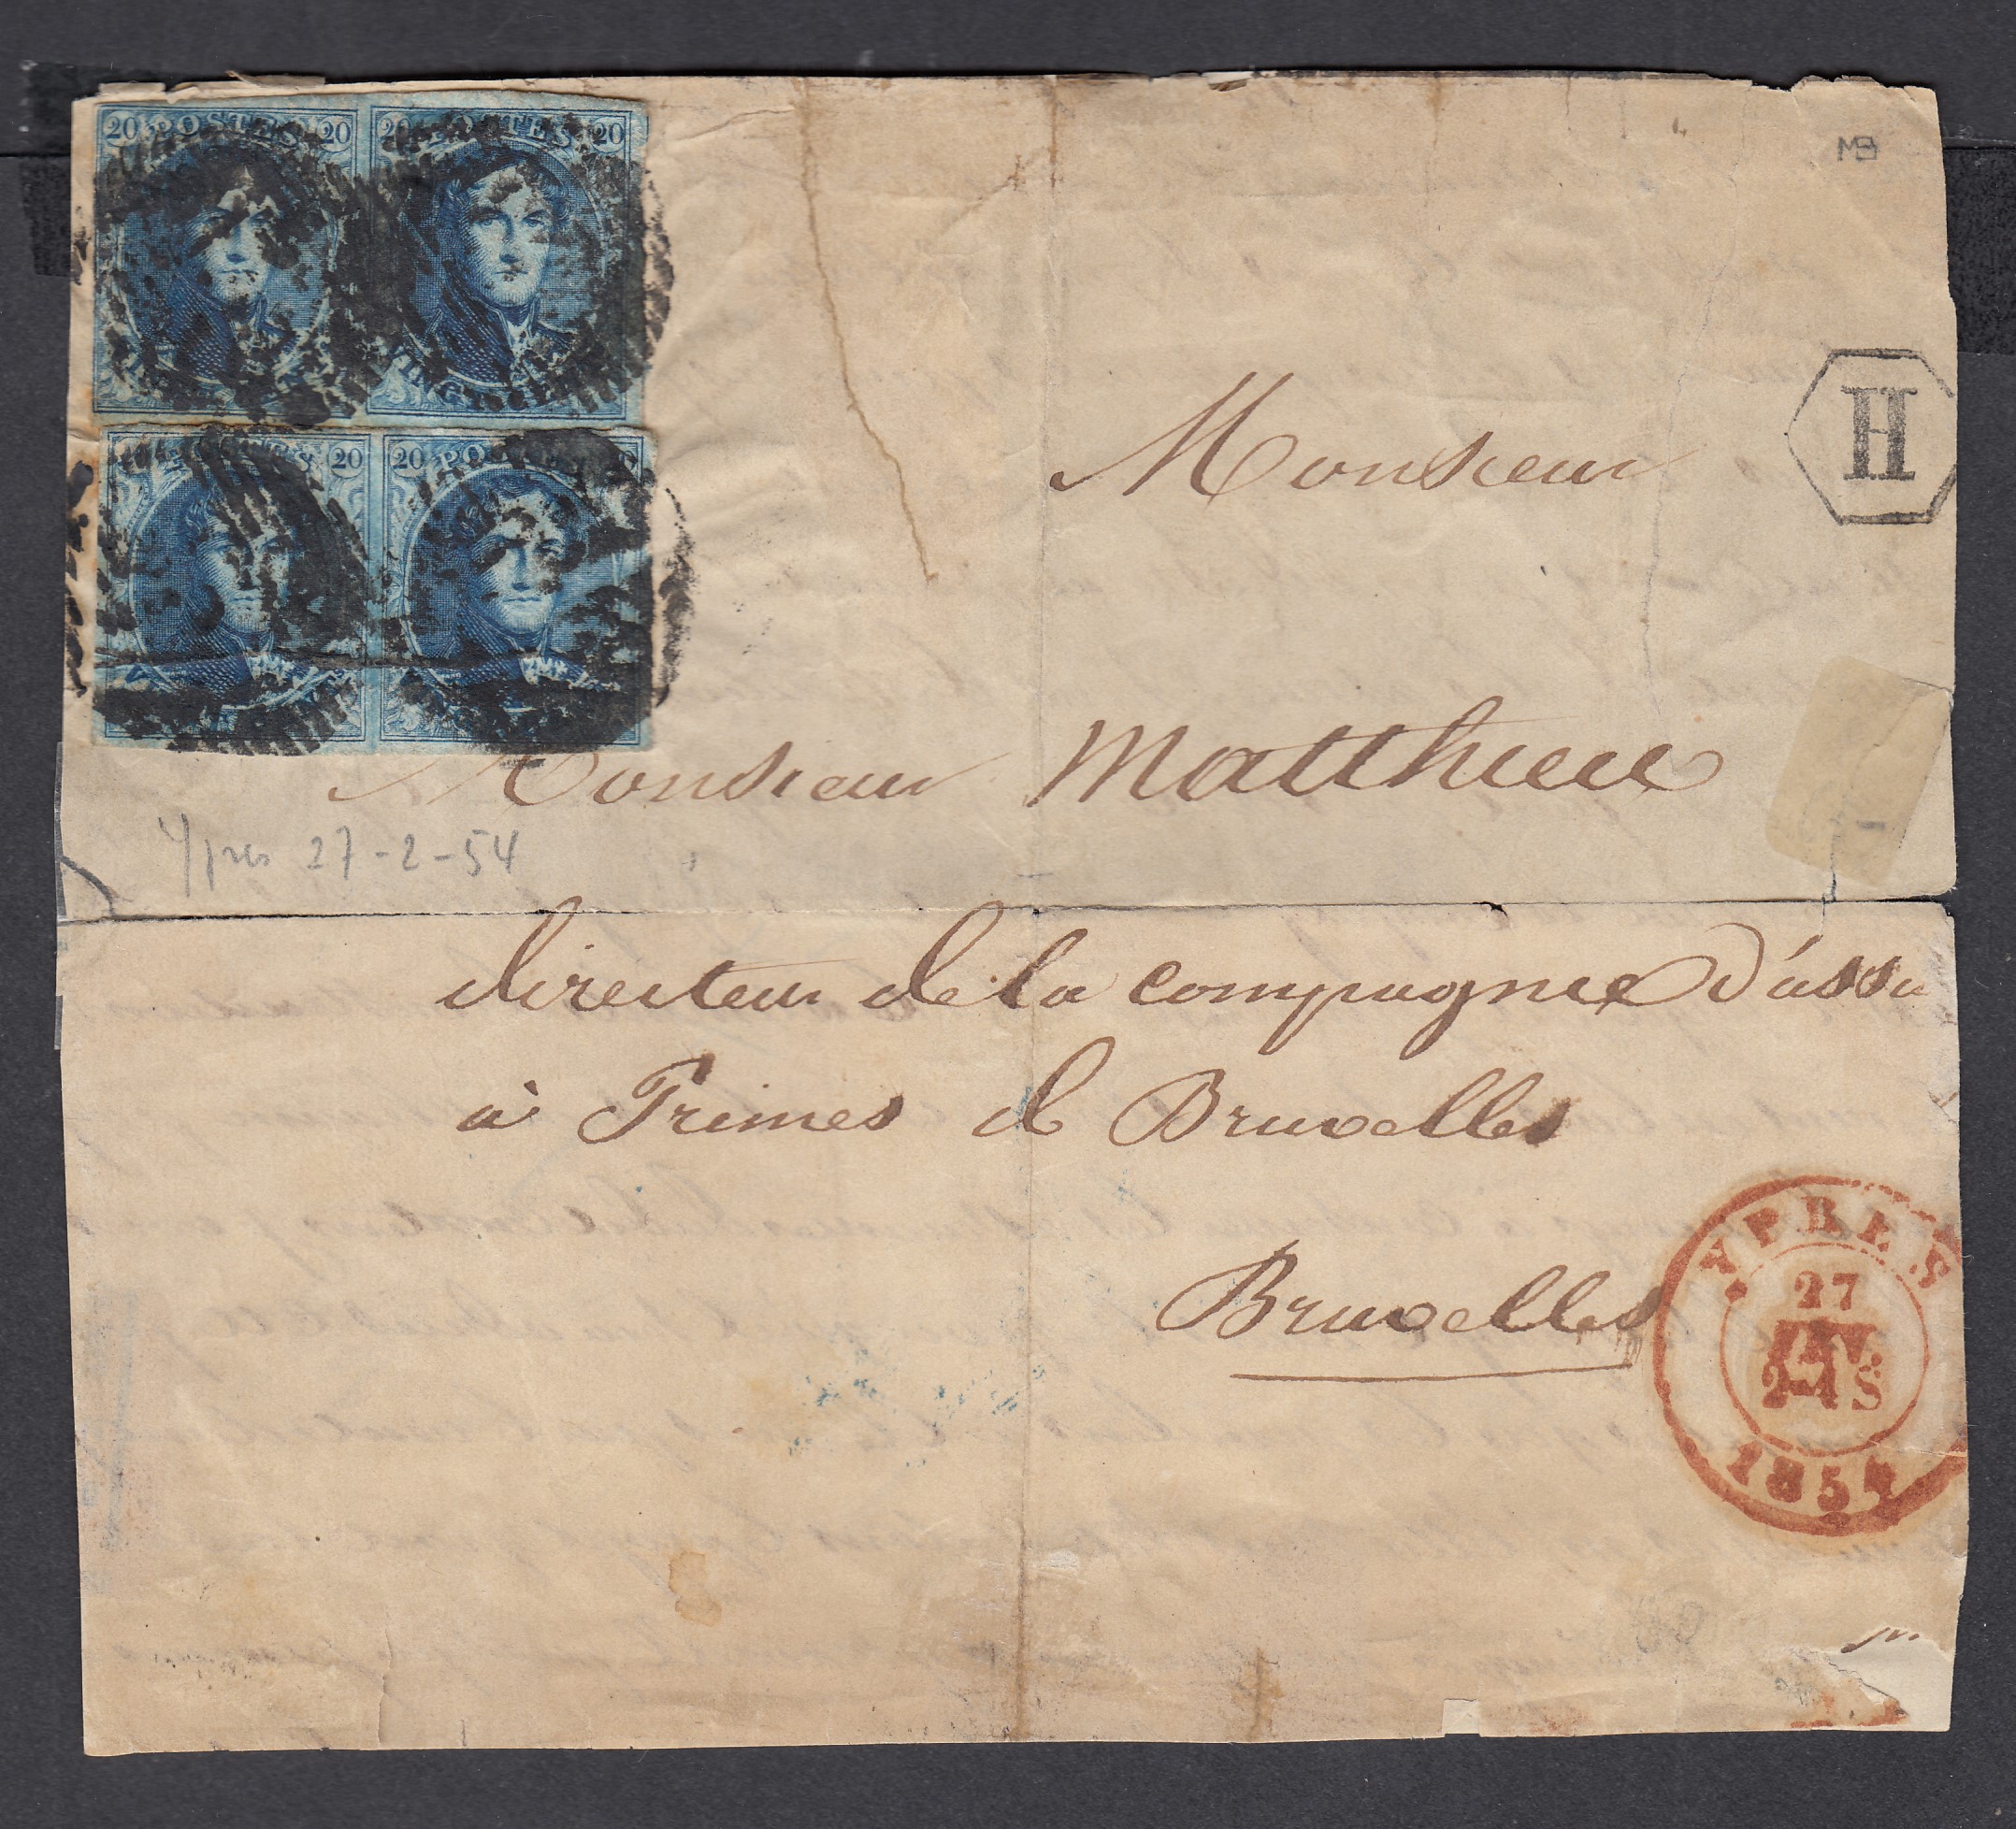 20 POSTES 20 20 POSTES 20
VINGT
20 POSTES 20 20 POSTES
MB
H
Monsieur
Monsieur Matthieu
Ypres 27-2-54
directeur de la compagnie d'assu
à Primes de Bruxelles
Bruxelles
YPRES
27
2-4 S
1854